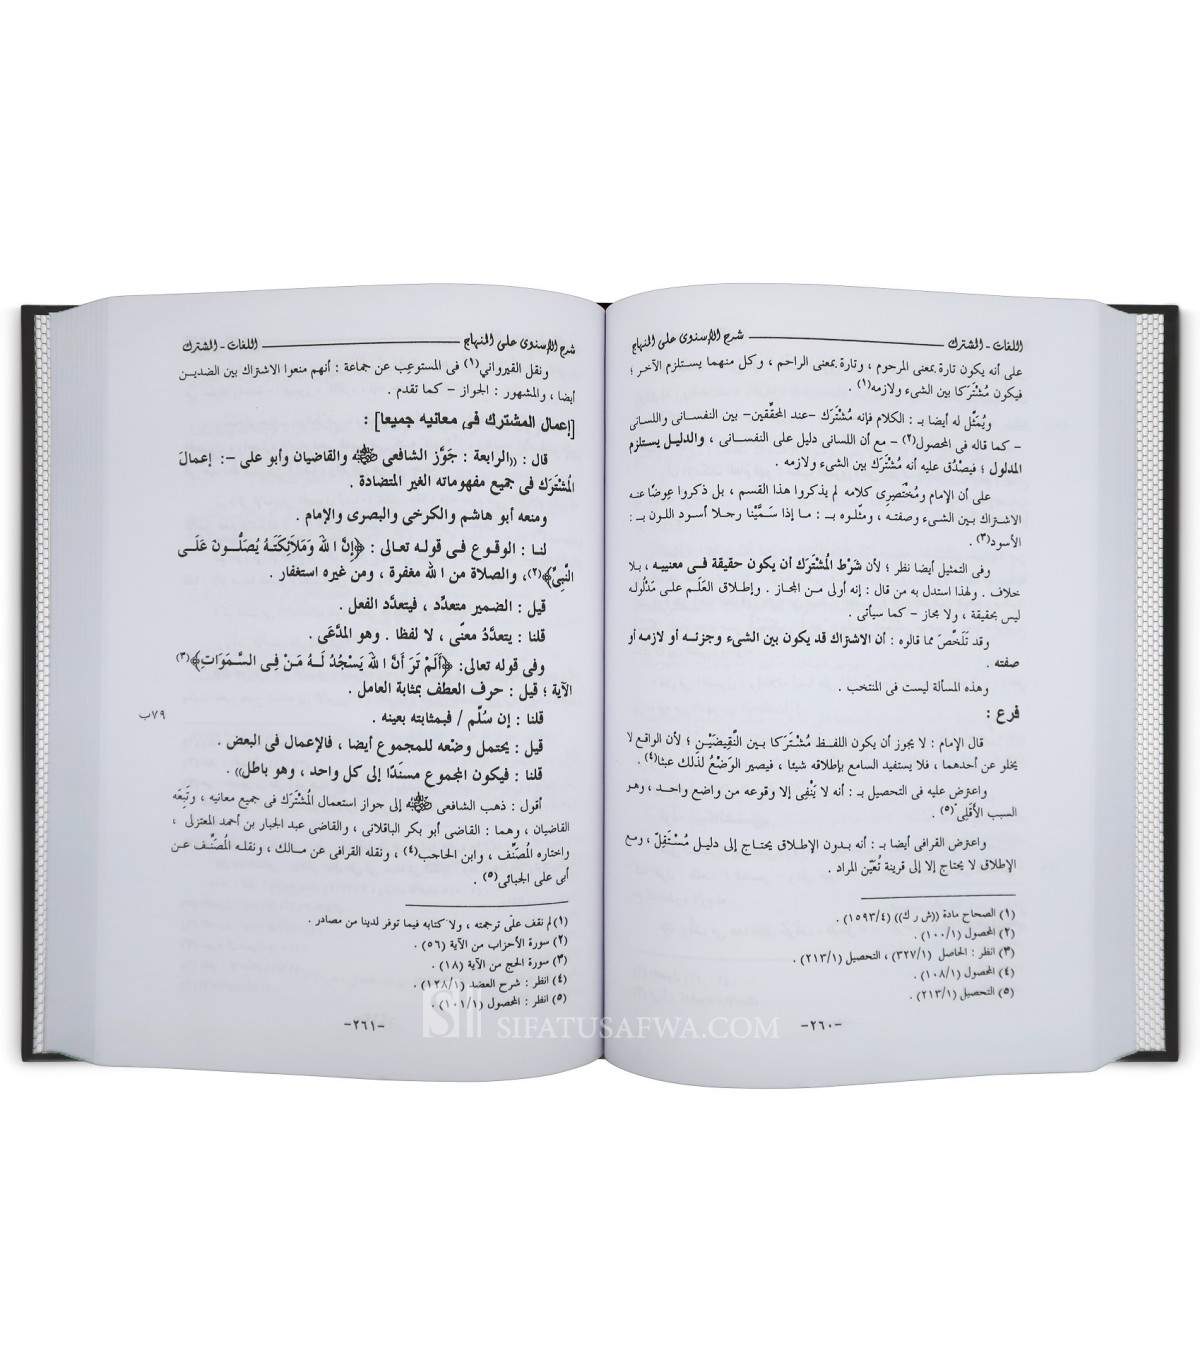 اللغات - المشترك
شرح الإسنوى على المنهاج
على أنه يكون تارة بمعنى المرحوم ، وتارة بمعنى الراحم ، وكل منهما يستلزم الآخر ؛
فيكون مُشْتَرَكا بين الشىء ولازمه(١) .
ويُمَثِّل له أيضا بـ : الكلام فإنه مُشْتَرَك -عند المحقِّقين- بين النفسانى واللسانى
- كما قاله فى المحصول(٢) - مع أن اللسانى دليل على النفسـانى ، والدليل يستلزم
المدلول ؛ فيصْدُق عليه أنه مُشْتَرَك بين الشىء ولازمه .
على أن الإمام ومُخْتَصِرِى كلامه لم يذكروا هذا القسم ، بل ذكروا عِوضًا عنه
الاشتراك بين الشىء وصفته ، ومثّلوه بـ : ما إذا سَمَّيْنا رجلا أسود اللون بـ :
الأسود(٣) .
وفى التمثيل أيضا نظر ؛ لأن شَرْط المُشْتَرَك أن يكون حقيقة فى معنييه ، بلا
خلاف . ولهذا استدل به من قال : إنه أولى من المجاز . وإطلاق العَلَم على مَدْلُوله
ليس بحقيقة ، ولا مجاز - كما سيأتى .
وقد تَلَخَّصَ مما قالوه : أن الاشتراك قد يكون بين الشىء وجزئه أو لازمه أو
صفته .
وهذه المسألة ليست فى المنتخب .
فرع :
قال الإمام : لا يجوز أن يكون اللفـظ مُشْتَرَكا بـين النَّقِيضَيْن ؛ لأن الواقع لا
يخلو عن أحدهما ، فلا يستفيد السامع بإطلاقه شيئا ، فيصير الوَضْعُ لذلك عبثا(٤) .
واعترض عليه فى التحصيل بـ : أنه لا يَنْفِى إلا وقوعه من واضع واحد ، وهو
السبب الأَقَلِىّ(٥) .
واعترض القرافى أيضا بـ : أنه بدون الإطلاق يحتاج إلى دليل مُسْتَقِلّ ، ومع
الإطلاق لا يحتاج إلا إلى قرينة تُعَيّن المراد .
(١) الصحاح مادة ((ش ر ك)) (١٥٩٣/٤) .
(٢) المحصول (١٠٠/١) .
(٣) انظر : الحاصل (٣٢٧/١) ، التحصيل (٢١٣/١) .
(٤) المحصول (١٠٨/١) .
(٥) التحصيل (٢١٣/١) .
-٢٦٠-
شرح الإسنوى على المنهاج
اللغات - المشترك
ونقل القيروانى(١) فى المستوعِب عن جماعة : أنهم منعوا الاشتراك بين الضدين
أيضا ، والمشهور : الجواز - كما تقدم .
[إعمال المشترك فى معانيه جميعا] :
قال : ((الرابعة : جَوَّز الشافعى ﵁ والقاضيان وأبو على -: إعمالَ
المُشْتَرَك فى جميع مفهوماته الغير المتضادة .
ومنعه أبو هاشم والكرخى والبصرى والإمام .
لنا : الوقوع فـى قولـه تعالى : ﴿إِنَّ اللهَ وَمَلَائِكَتَهُ يُصَلُّـونَ عَلَـى
النَّبِىِّ﴾(٢)، والصلاة من الله مغفرة ، ومن غيره استغفار .
قيل : الضمير متعدِّد ، فيتعدَّد الفعل .
قلنا : يتعدَّدُ معنًى ، لا لفظا . وهو المدَّعَى .
وفى قوله تعالى: ﴿أَلَمْ تَرَ أَنَّ اللهَ يَسْجُدُ لَـهُ مَـنْ فِـى السَّمَوَات﴾(٣)
الآية ؛ قيل : حرف العطف بمثابة العامل .
قلنا : إن سُلّم / فبمثابته بعينه .
٧٩ب
قيل : يحتمل وضْعه للمجموع أيضا ، فالإعمال فى البعض .
قلنا : فيكون المجموع مسنَدًا إلى كل واحد ، وهو باطل)) .
أقول : ذهب الشافعى ﵁ إلى جواز استعمال المُشْتَرَك فى جميع معانيه ، وتَبِعَه
القاضيان ، وهما : القاضى أبو بكر الباقلانى ، والقاضى عبد الجبار بن أحمد المعتزلى ،
واختاره المُصَنِّف ، وابن الحاجب(٤) ، ونقله القرافى عن مـالك ، ونقلـه المُصَنِّـف عـن
أبى على الجبائى(٥) .
(١) لم نقف على ترجمته ، ولا كتابه فيما توفر لدينا من مصادر .
(٢) سورة الأحزاب من الآية (٥٦) .
(٣) سورة الحج من الآية (١٨) .
(٤) انظر : شرح العضد (١٢٨/١) .
(٥) انظر : المحصول (١٠١/١) .
-٢٦١-
SIFATUSAFWA.COM